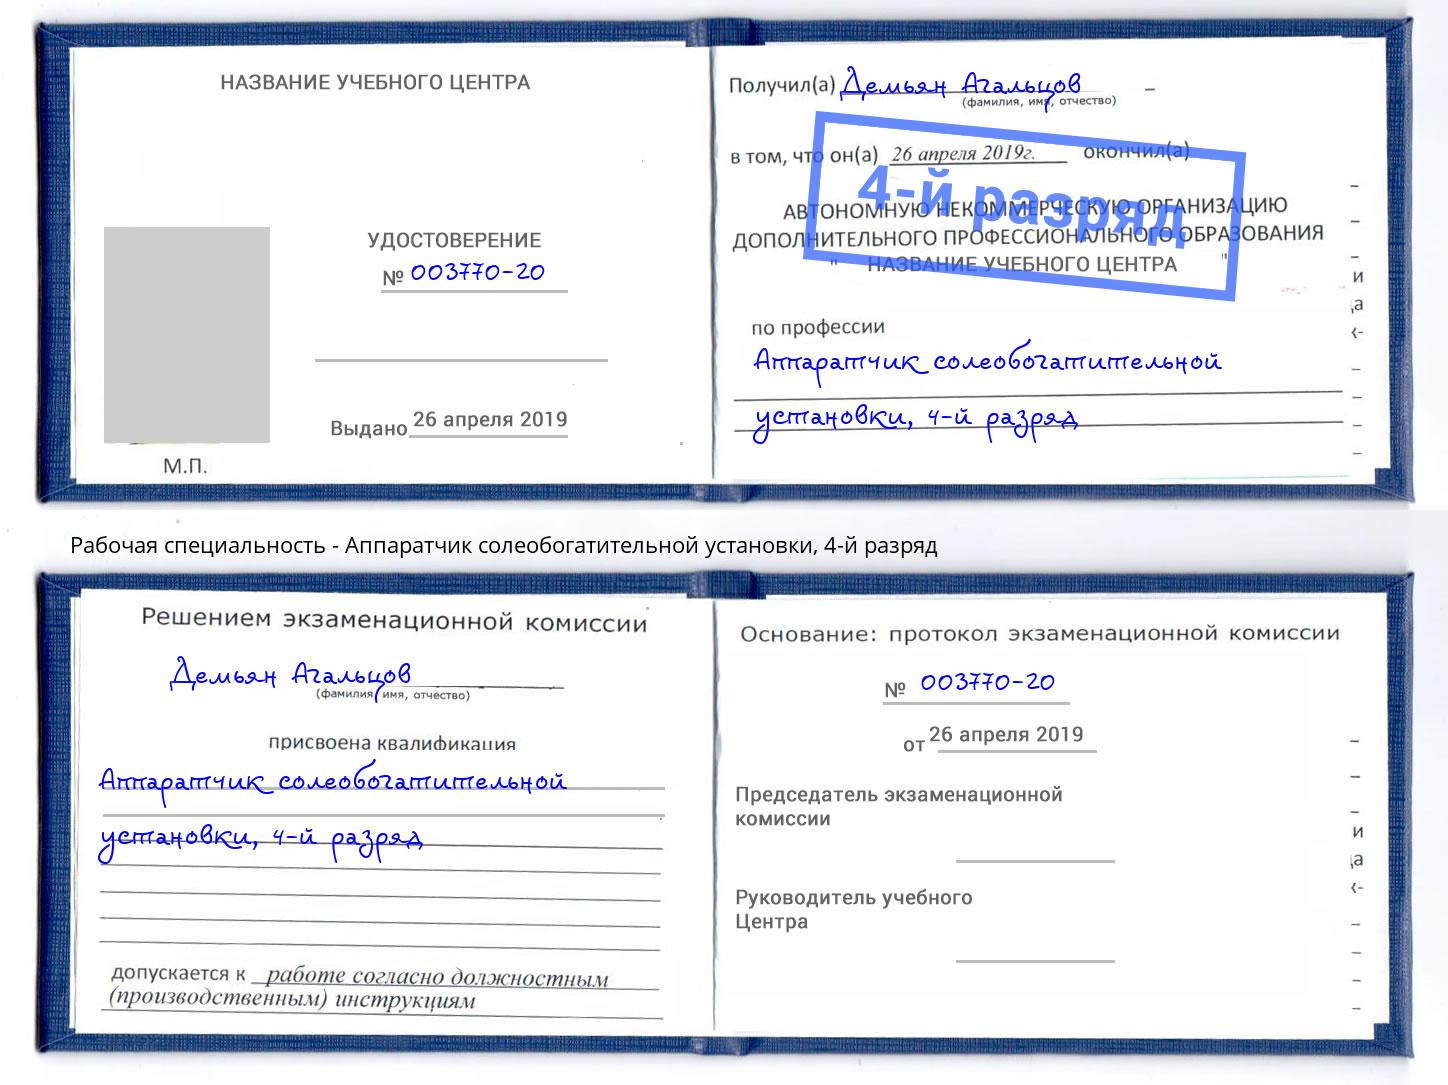 НАЗВАНИЕ УЧЕБНОГО ЦЕНТРА
УДОСТОВЕРЕНИЕ
№ 003770-20
Выдано 26 апреля 2019
М.П.
Получил(а) Демьян Агальцов
(фамилия, имя, отчество)
в том, что он(а) 26 апреля 2019г. окончил(а)
4-й разряд
АВТОНОМНУЮ НЕКОММЕРЧЕСКУЮ ОРГАНИЗАЦИЮ
ДОПОЛНИТЕЛЬНОГО ПРОФЕССИОНАЛЬНОГО ОБРАЗОВАНИЯ
" НАЗВАНИЕ УЧЕБНОГО ЦЕНТРА "
по профессии
Аппаратчик солеобогатительной
установки, 4-й разряд
Рабочая специальность - Аппаратчик солеобогатительной установки, 4-й разряд
Решением экзаменационной комиссии
Демьян Агальцов
(фамилия, имя, отчество)
присвоена квалификация
Аппаратчик солеобогатительной
установки, 4-й разряд
допускается к работе согласно должностным
(производственным) инструкциям
Основание: протокол экзаменационной комиссии
№ 003770-20
от 26 апреля 2019
Председатель экзаменационной
комиссии
Руководитель учебного
Центра